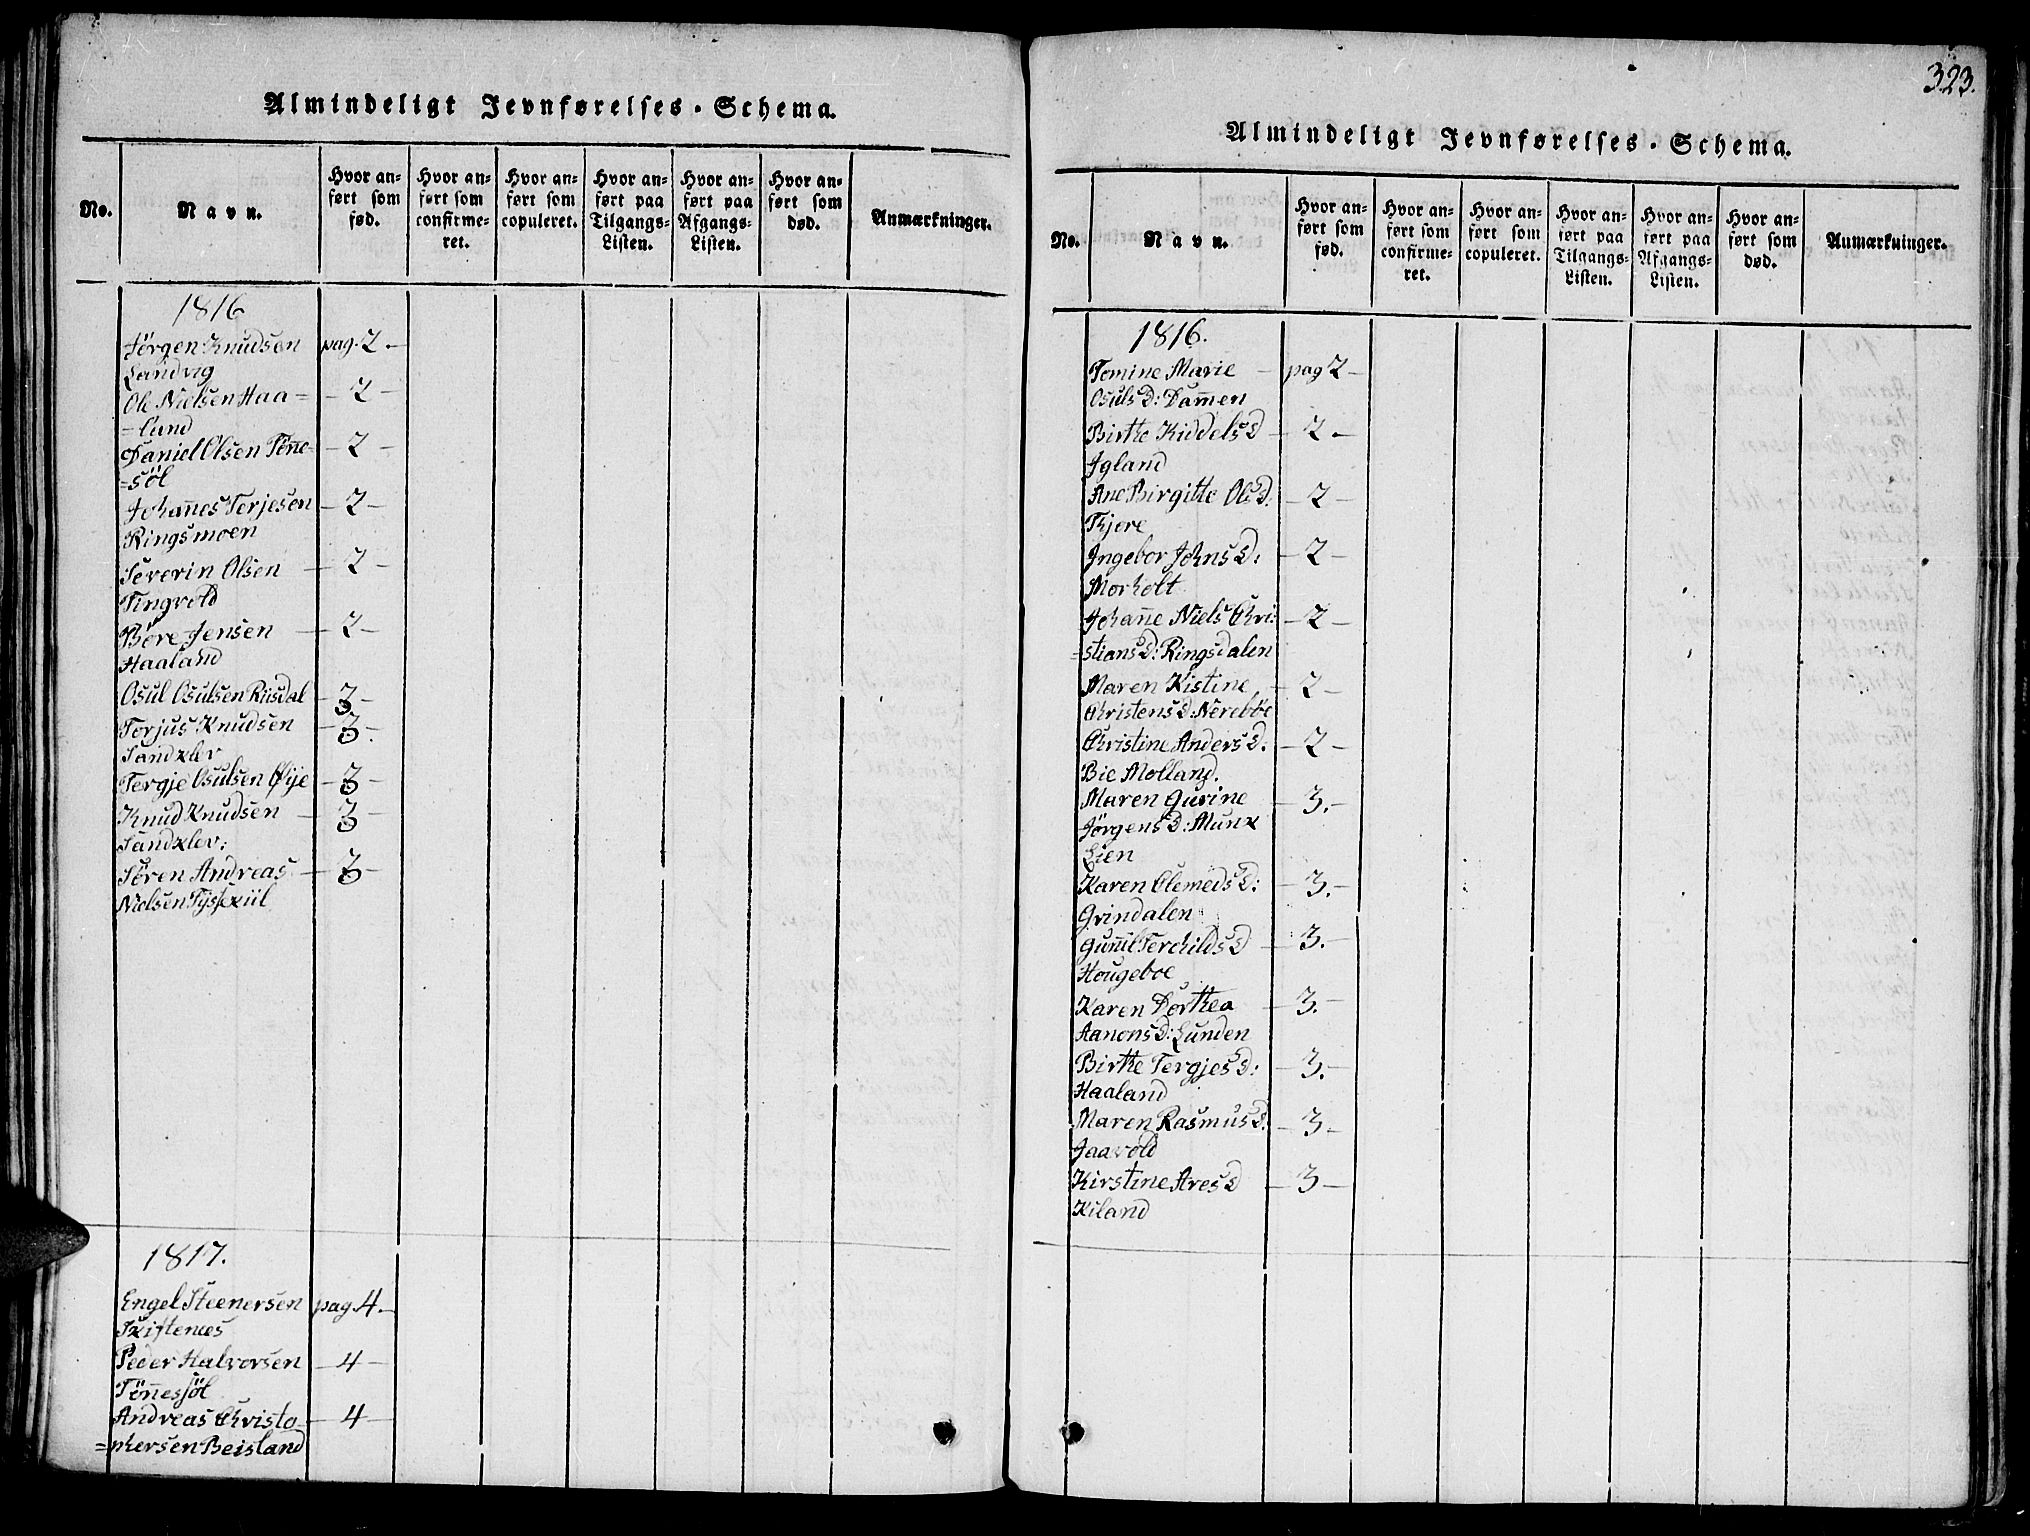 Almindeligt Jevnførelses-Schema.
No.
Navn.
Hvor an-
ført som
fød.
Hvor an-
ført som
confirme-
ret.
Hvor an-
ført som
copuleret.
Hvor an-
ført paa
Tilgangs-
Listen.
Hvor an-
ført paa
Afgangs-
Listen.
Hvor an-
ført som
død.
Anmærkninger.
1816
Jörgen Knudsen pag. 2.-
Landvig
Ole Nielsen Haa= -2-
=land
Daniel Olsen Töne- -2-
=söl
Johan̄es Terjesen -2-
Ringsmoen
Severin Olsen -2-
Tingvold
Böre Jensen -2-
Haaland
Osul Osulsen Riisdal -3-
Torjus Knudsen -3.
Sandklev
Tergje Osulsen Øije -3-
Knud Knudsen -3
Sandklev:
Sören Andreas -3-
Nielsen Tyskiil
1817.
Engel Steenersen pag. 4.-
Skiftenæs
Peder Halvorsen -4-
Tön̄essöl
Andreas Christo- -4-
=phersen Beisland
323.
Almindeligt Jevnførelses-Schema.
No.
Navn.
Hvor an-
ført som
fød.
Hvor an-
ført som
confirme-
ret.
Hvor an-
ført som
copuleret.
Hvor an-
ført paa
Tilgangs-
Listen.
Hvor an-
ført paa
Afgangs-
Listen.
Hvor an-
ført som
død.
Anmærkninger.
1816.
Tomine Marie - pag 2-
Osuls D: Dam̄en
Birthe Kiddels D -2-
Igland
Ane Birgitte Ols D: -2-
Tkjore
Ingebor Johns D: -2-
Morholt
Johan̄e Niels Chri: -2-
=stians D: Ringsdalen
Maren Kistine -2-
Christens D: Nereböe
Christine Anders D. -2-
Bie Molland.
Maren Gurine -3.-
Jörgens D: Munk
Lien
Karen Olemeds D: -3.-
Grindalen
Gun̄il Terchilds D -3.-
Hougeboe
Karen Dorthea -3.-
Aanons D: Lunden
Birthe Tergjes D: -3.-
Haaland
Maren Rasmus D. -3-
Jaavold
Kirstine Ares D -3-
Kiland